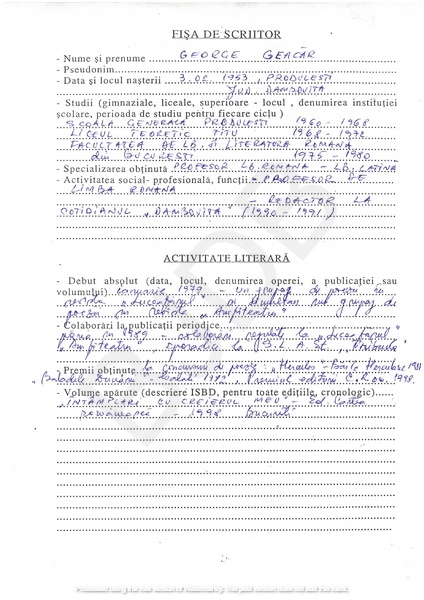 FIŞA DE SCRIITOR
- Nume şi prenume GEORGE GEACĂR
- Pseudonim
- Data şi locul naşterii 3.02.1953, PRODULESTI
JUD. DAMBOVITA
- Studii (gimnaziale, liceale, superioare - locul, denumirea instituţiei
şcolare, perioada de studiu pentru fiecare ciclu)
ŞCOALA GENERALA PRODULESTI 1960 - 1968
LICEUL TEORETIC TITU 1968 - 1972
FACULTATEA DE LB. SI LITERATURA ROMANA
din BUCURESTI 1975 - 1980
- Specializarea obţinută PROFESOR LB. ROMANA - LB. LATINA
- Activitatea social- profesionala, funcţii - PROFESOR DE
LIMBA ROMANA
- REDACTOR LA
COTIDIANUL "DAMBOVITA" (1990 - 1991)
ACTIVITATE LITERARĂ
- Debut absolut (data, locul, denumirea operei, a publicaţiei sau
volumului) ianuarie 1979 - Un grupaj de poezii in
revista "Luceafarul" si un grupaj de
poezii in revista "Amfiteatru"
- Colaborări la publicaţii periodice
pana in 1989 - colaborari la "Luceafarul"
"Amfiteatru", sporadic la S.L.A.S.T., "Tribuna"
- Premii obţinute la concursuri de poezie "Hercules" - Baile Herculane
- Galati 1982, Premiul editurii C.R. 1998
- Volume apărute (descriere ISBD, pentru toate ediţiile, cronologic)
"INTAMPLARI CU CREIERUL MEU" - Ed. Cartea
românească - 1998 Bucuresti